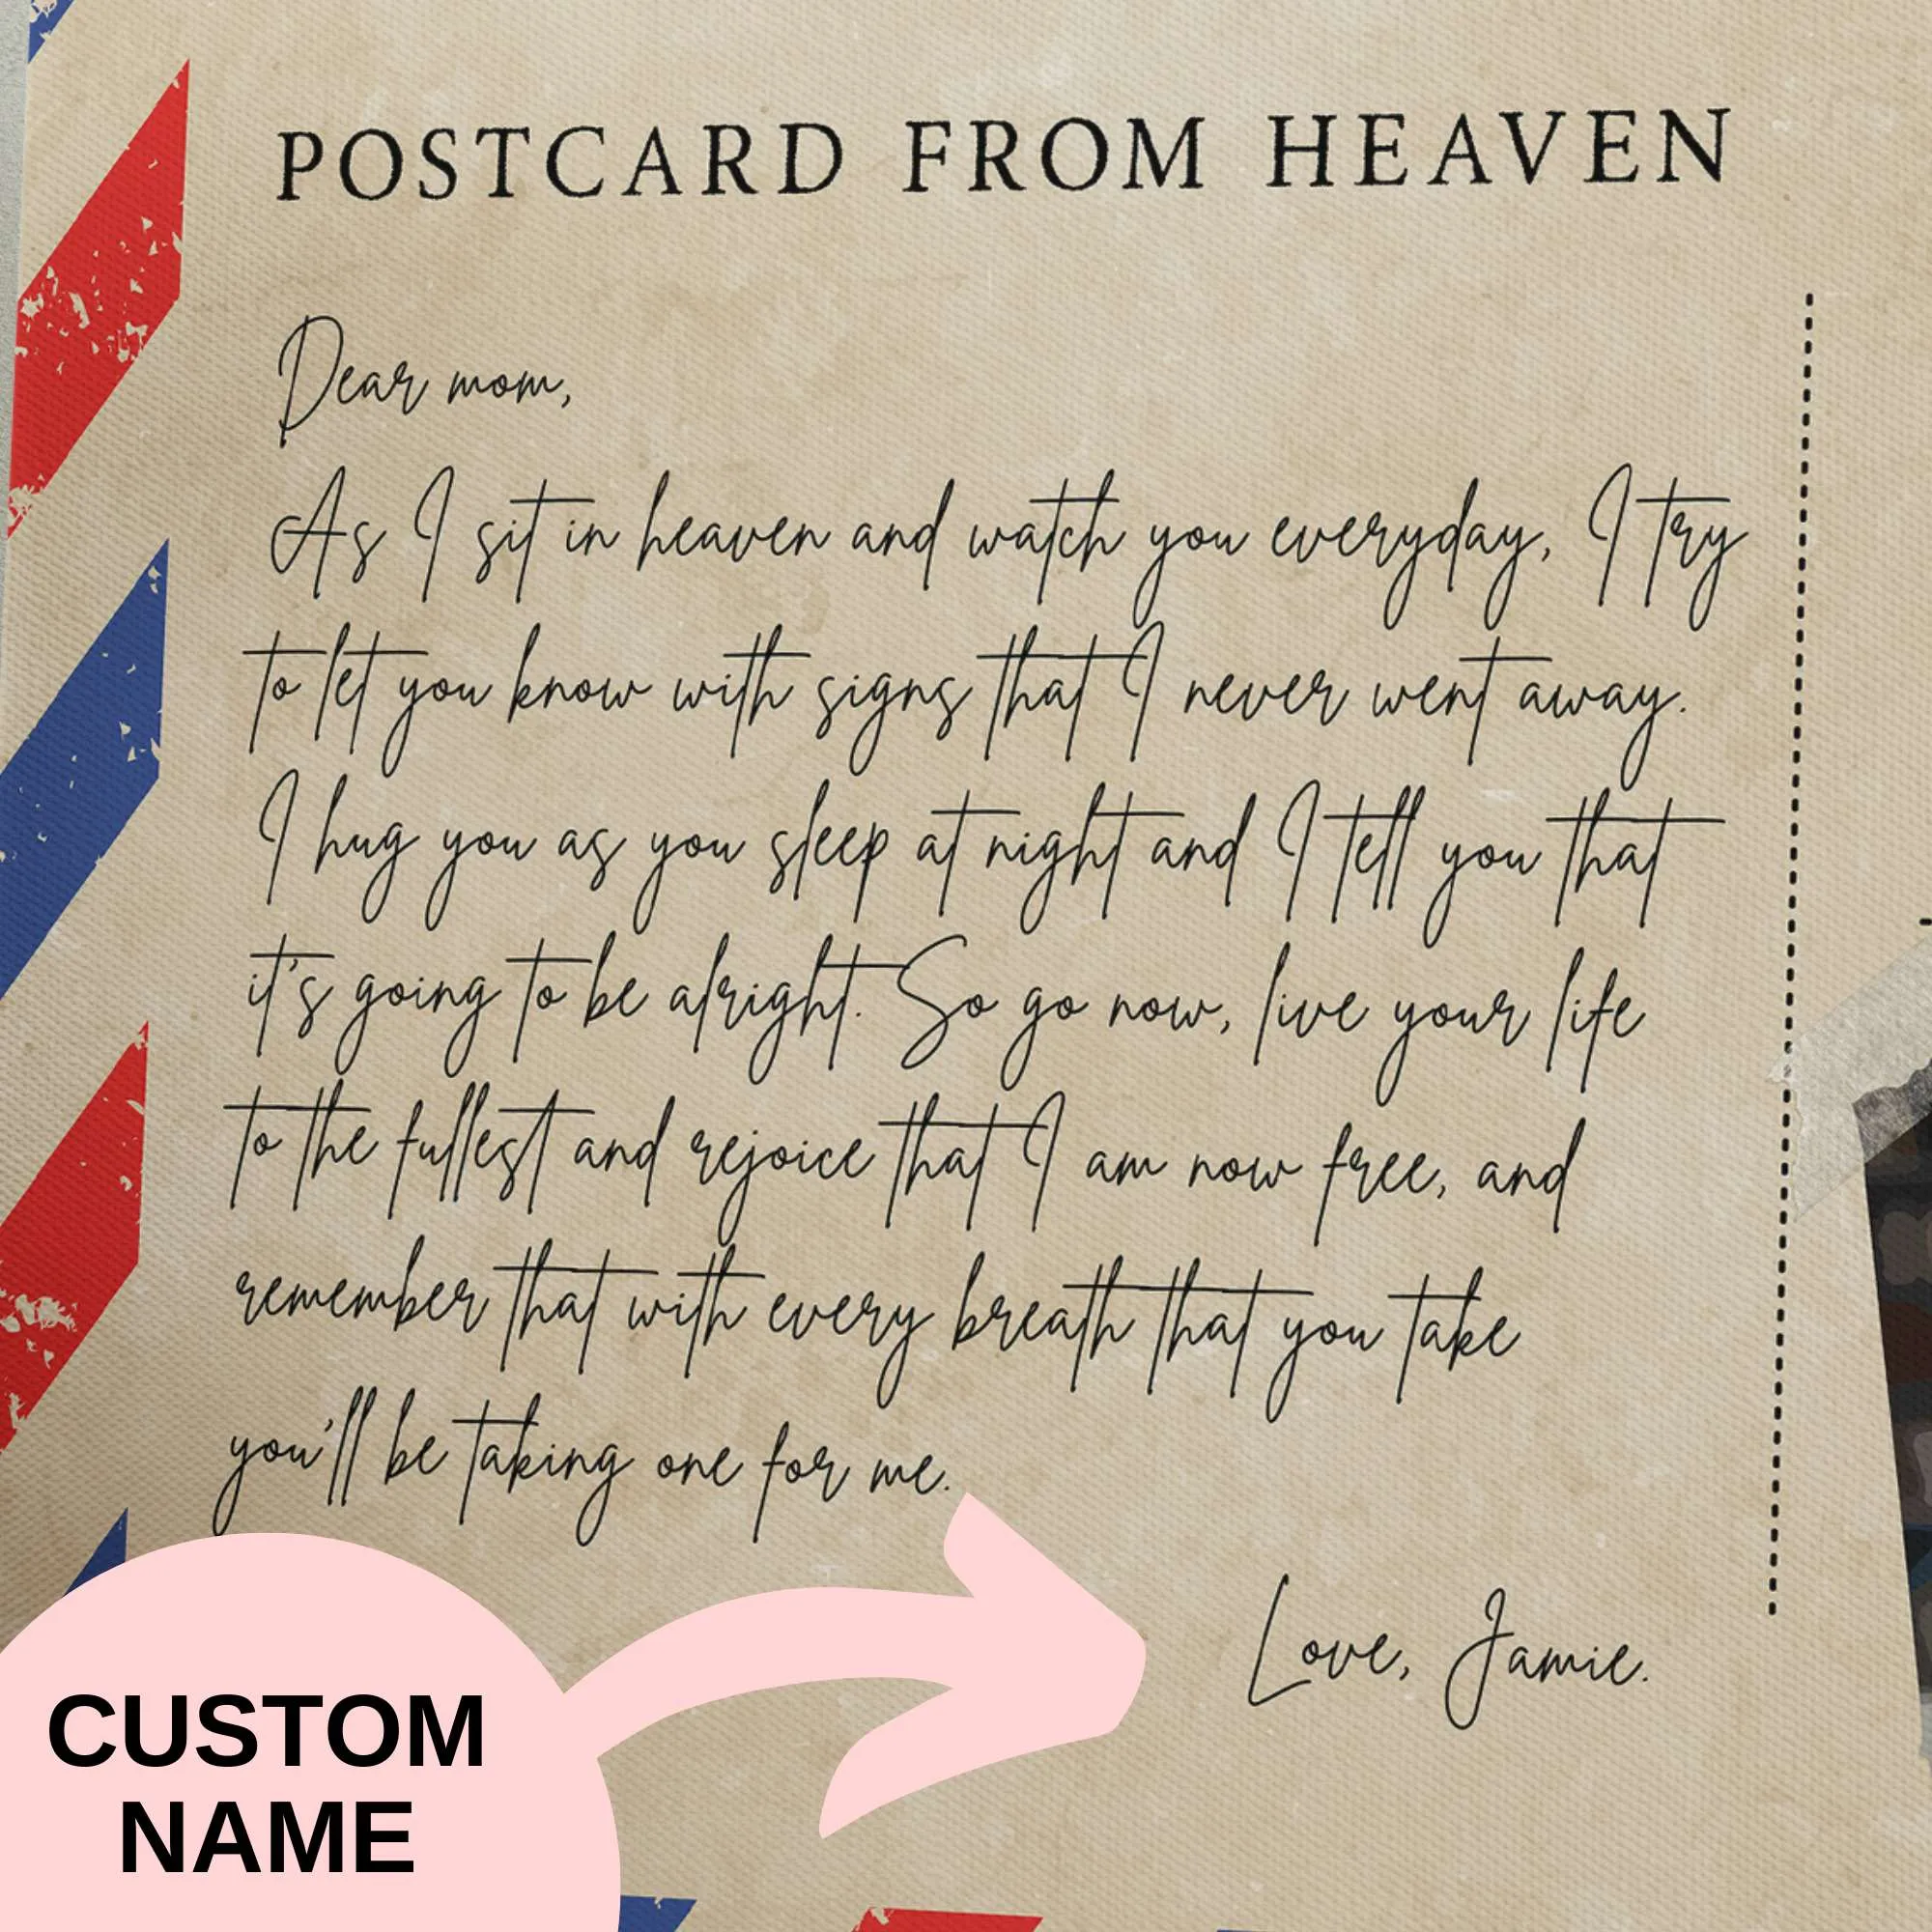 POSTCARD FROM HEAVEN
Dear mom,
As I sit in heaven and watch you everyday, I try
to let you know with signs that I never went away.
I hug you as you sleep at night and I tell you that
it's going to be alright. So go now, live your life
to the fullest and rejoice that I am now free, and
remember that with every breath that you take
you'll be taking one for me.
Love, Jamie.
CUSTOM
NAME